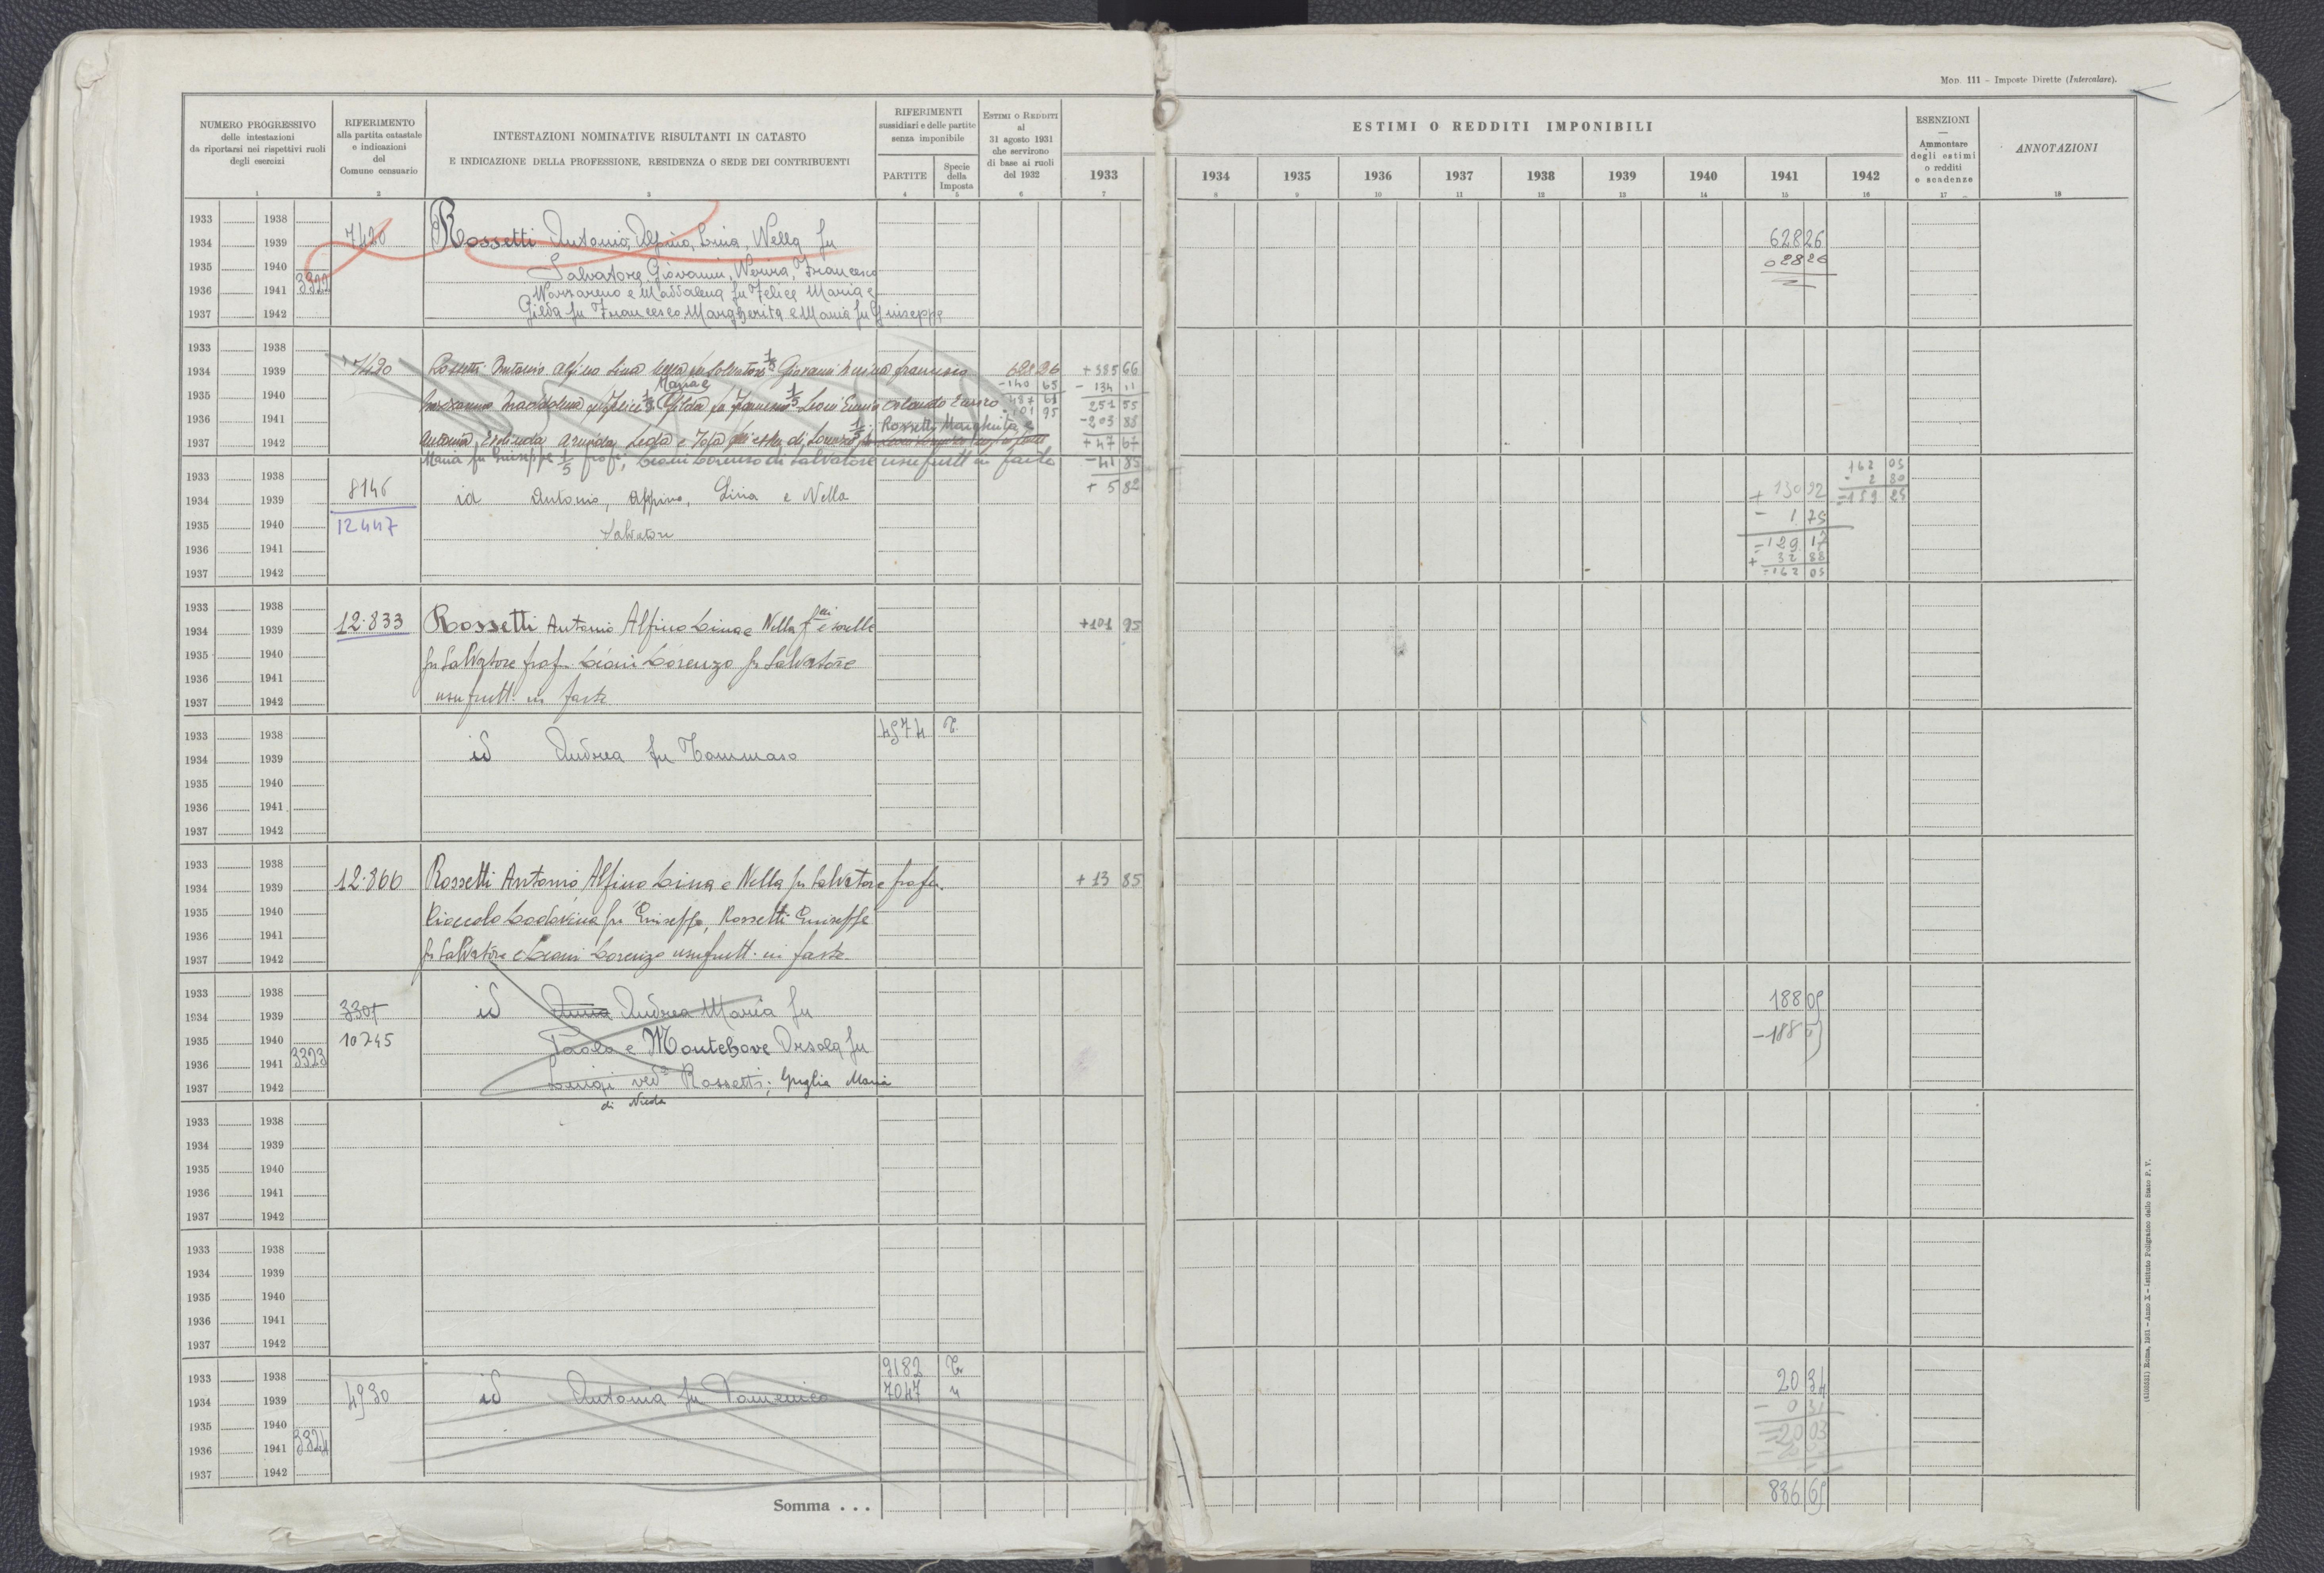 Mod. 111 - Imposte Dirette (Intercalare).
NUMERO PROGRESSIVO
delle intestazioni
da riportarsi nei rispettivi ruoli
degli esercizi
1
RIFERIMENTO
alla partita catastale
e indicazioni
del
Comune censuario
2
INTESTAZIONI NOMINATIVE RISULTANTI IN CATASTO
E INDICAZIONE DELLA PROFESSIONE, RESIDENZA O SEDE DEI CONTRIBUENTI
3
RIFERIMENTI
sussidiari e delle partite
senza imponibile
PARTITE
4
Specie
della
Imposta
5
Estimi o Redditi
al
31 agosto 1931
che servirono
di base ai ruoli
del 1932
6
1933
7
ESTIMI O REDDITI IMPONIBILI
1934 1935 1936 1937 1938 1939 1940 1941 1942
8 9 10 11 12 13 14 15 16
ESENZIONI
Ammontare
degli estimi
o redditi
e scadenze
17
ANNOTAZIONI
18
1933 1938
1934 1939 7420 Rossetti Antonio, Alfino, Lina, Nella fu 628 26
1935 1940 Salvatore, Giovanni, Francesco 628 26
1936 1941 3322 Nazzareno e Maddalena fu Felice Maria e
1937 1942 Gilda fu Francesco Margherita e Maria fu Giuseppe
1933 1938
1934 1939 7420 Rossetti Antonio Alfino Lina Nella fu Salvatore 1/5 Giovanni francesco 628 26 + 385 66
- 140 65 - 134 11
Maria e
1935 1940 Maddalena fu Felice 1/5 Gilda fu francesco 1/5 Leoni Orlando 487 61 251 55
1936 1941 Rossetti Margherita e 101 95 - 203 88
1937 1942 Antonia, Leda e di Lorenzo 1/5 + 47 67
Maria fu Giuseppe 1/5 prop; Leoni Lorenzo di Salvatore usufrutt in parte - 41 85
+ 5 82
1933 1938 162 05
- 2 80
1934 1939 8146 id Antonio, Alfino, Lina e Nella + 130 92 = 159 25
1935 1940 12447 Salvatore - 1 75
1936 1941 = 129 17
+ 32 88
1937 1942 = 162 05
1933 1938
1934 1939 12.833 Rossetti Antonio Alfino Lina e Nella f.lli e sorelle + 101 95
1935 1940 fu Salvatore prop. Leoni Lorenzo fu Salvatore
1936 1941
1937 1942 usufrutt. in parte
1933 1938 4574 T.
1934 1939 id Andrea fu Tommaso
1935 1940
1936 1941
1937 1942
1933 1938
1934 1939 12.866 Rossetti Antonio Alfino Lina e Nella fu Salvatore prop. + 13 85
1935 1940 Lodovina fu Giuseppe, Rossetti Giuseppe
1936 1941
1937 1942 fu Salvatore e Leoni Lorenzo usufrutt. in parte.
1933 1938
1934 1939 3301 id Anna Andrea Maria fu 188 05
1935 1940 10745 Paolo e Montebove Orsola fu - 188
1936 1941 3323
1937 1942 Luigi ved.a Rossetti; Guglia Maria
di Nicola
1933 1938
1934 1939
1935 1940
1936 1941
1937 1942
1933 1938
1934 1939
1935 1940
1936 1941
1937 1942
1933 1938 9182 Tr
1934 1939 4930 id Antonia fu Domenico 7047 " 20 34
1935 1940 - 0 31
1936 1941 3324 = 20 03
1937 1942
Somma . . . 836 65
Roma, 1931 - Anno X - Istituto Poligrafico dello Stato P. V.